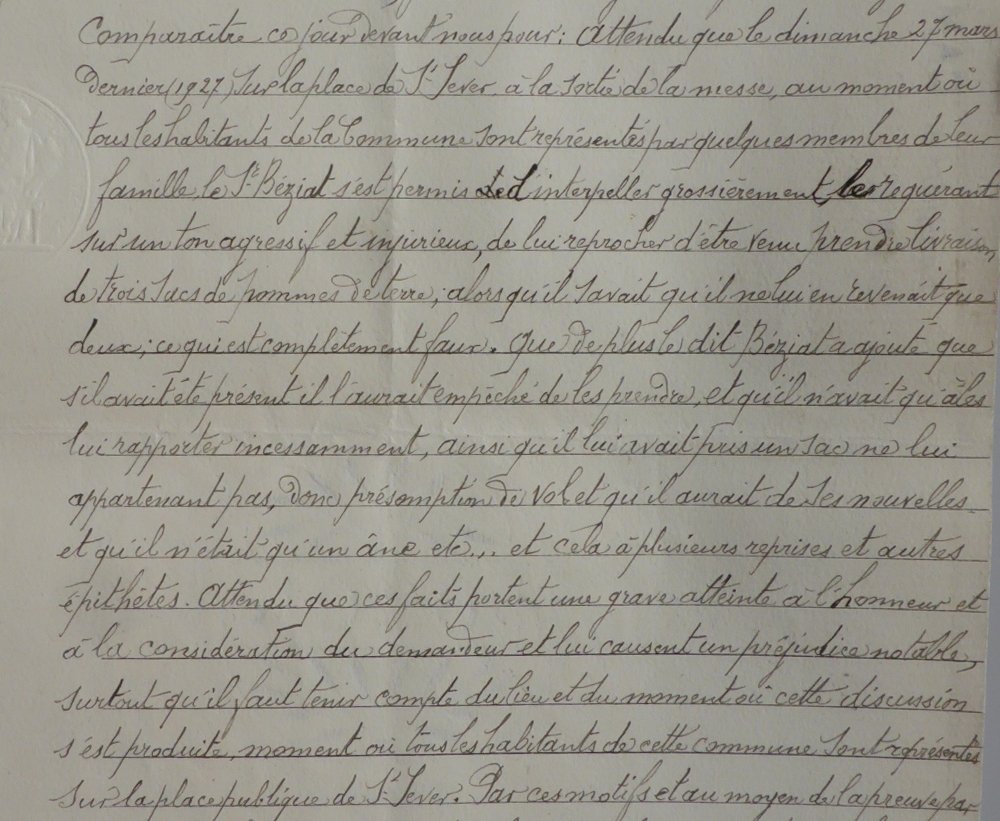 Comparaître ce jour devant nous pour: Attendu que le dimanche 27 mars
Dernier (1927) sur la place de St Sever à la sortie de la messe, au moment où
tous les habitants de la Commune sont représentés par quelques membres de leur
famille, le Sr Béziat s'est permis d'interpeller grossièrement le requérant
sur un ton agressif et injurieux, de lui reprocher d'être venu prendre livraison
de trois sacs de pommes de terre; alors qu'il savait qu'il ne lui en revenait que
deux; ce qui est complètement faux. Que de plus le dit Béziat a ajouté que
s'il avait été présent il l'aurait empêché de les prendre, et qu'il n'avait qu'à les
lui rapporter incessamment, ainsi qu'il lui avait pris un sac ne lui
appartenant pas, donc présomption de vol et qu'il aurait de ses nouvelles
et qu'il n'était qu'un âne etc... et cela à plusieurs reprises et autres
épithètes. Attendu que ces faits portent une grave atteinte à l'honneur et
à la considération du demandeur et lui causent un préjudice notable,
surtout qu'il faut tenir compte du lieu et du moment où cette discussion
s'est produite, moment où tous les habitants de cette commune sont représentés
sur la place publique de St Sever. Par ces motifs et au moyen de la preuve par